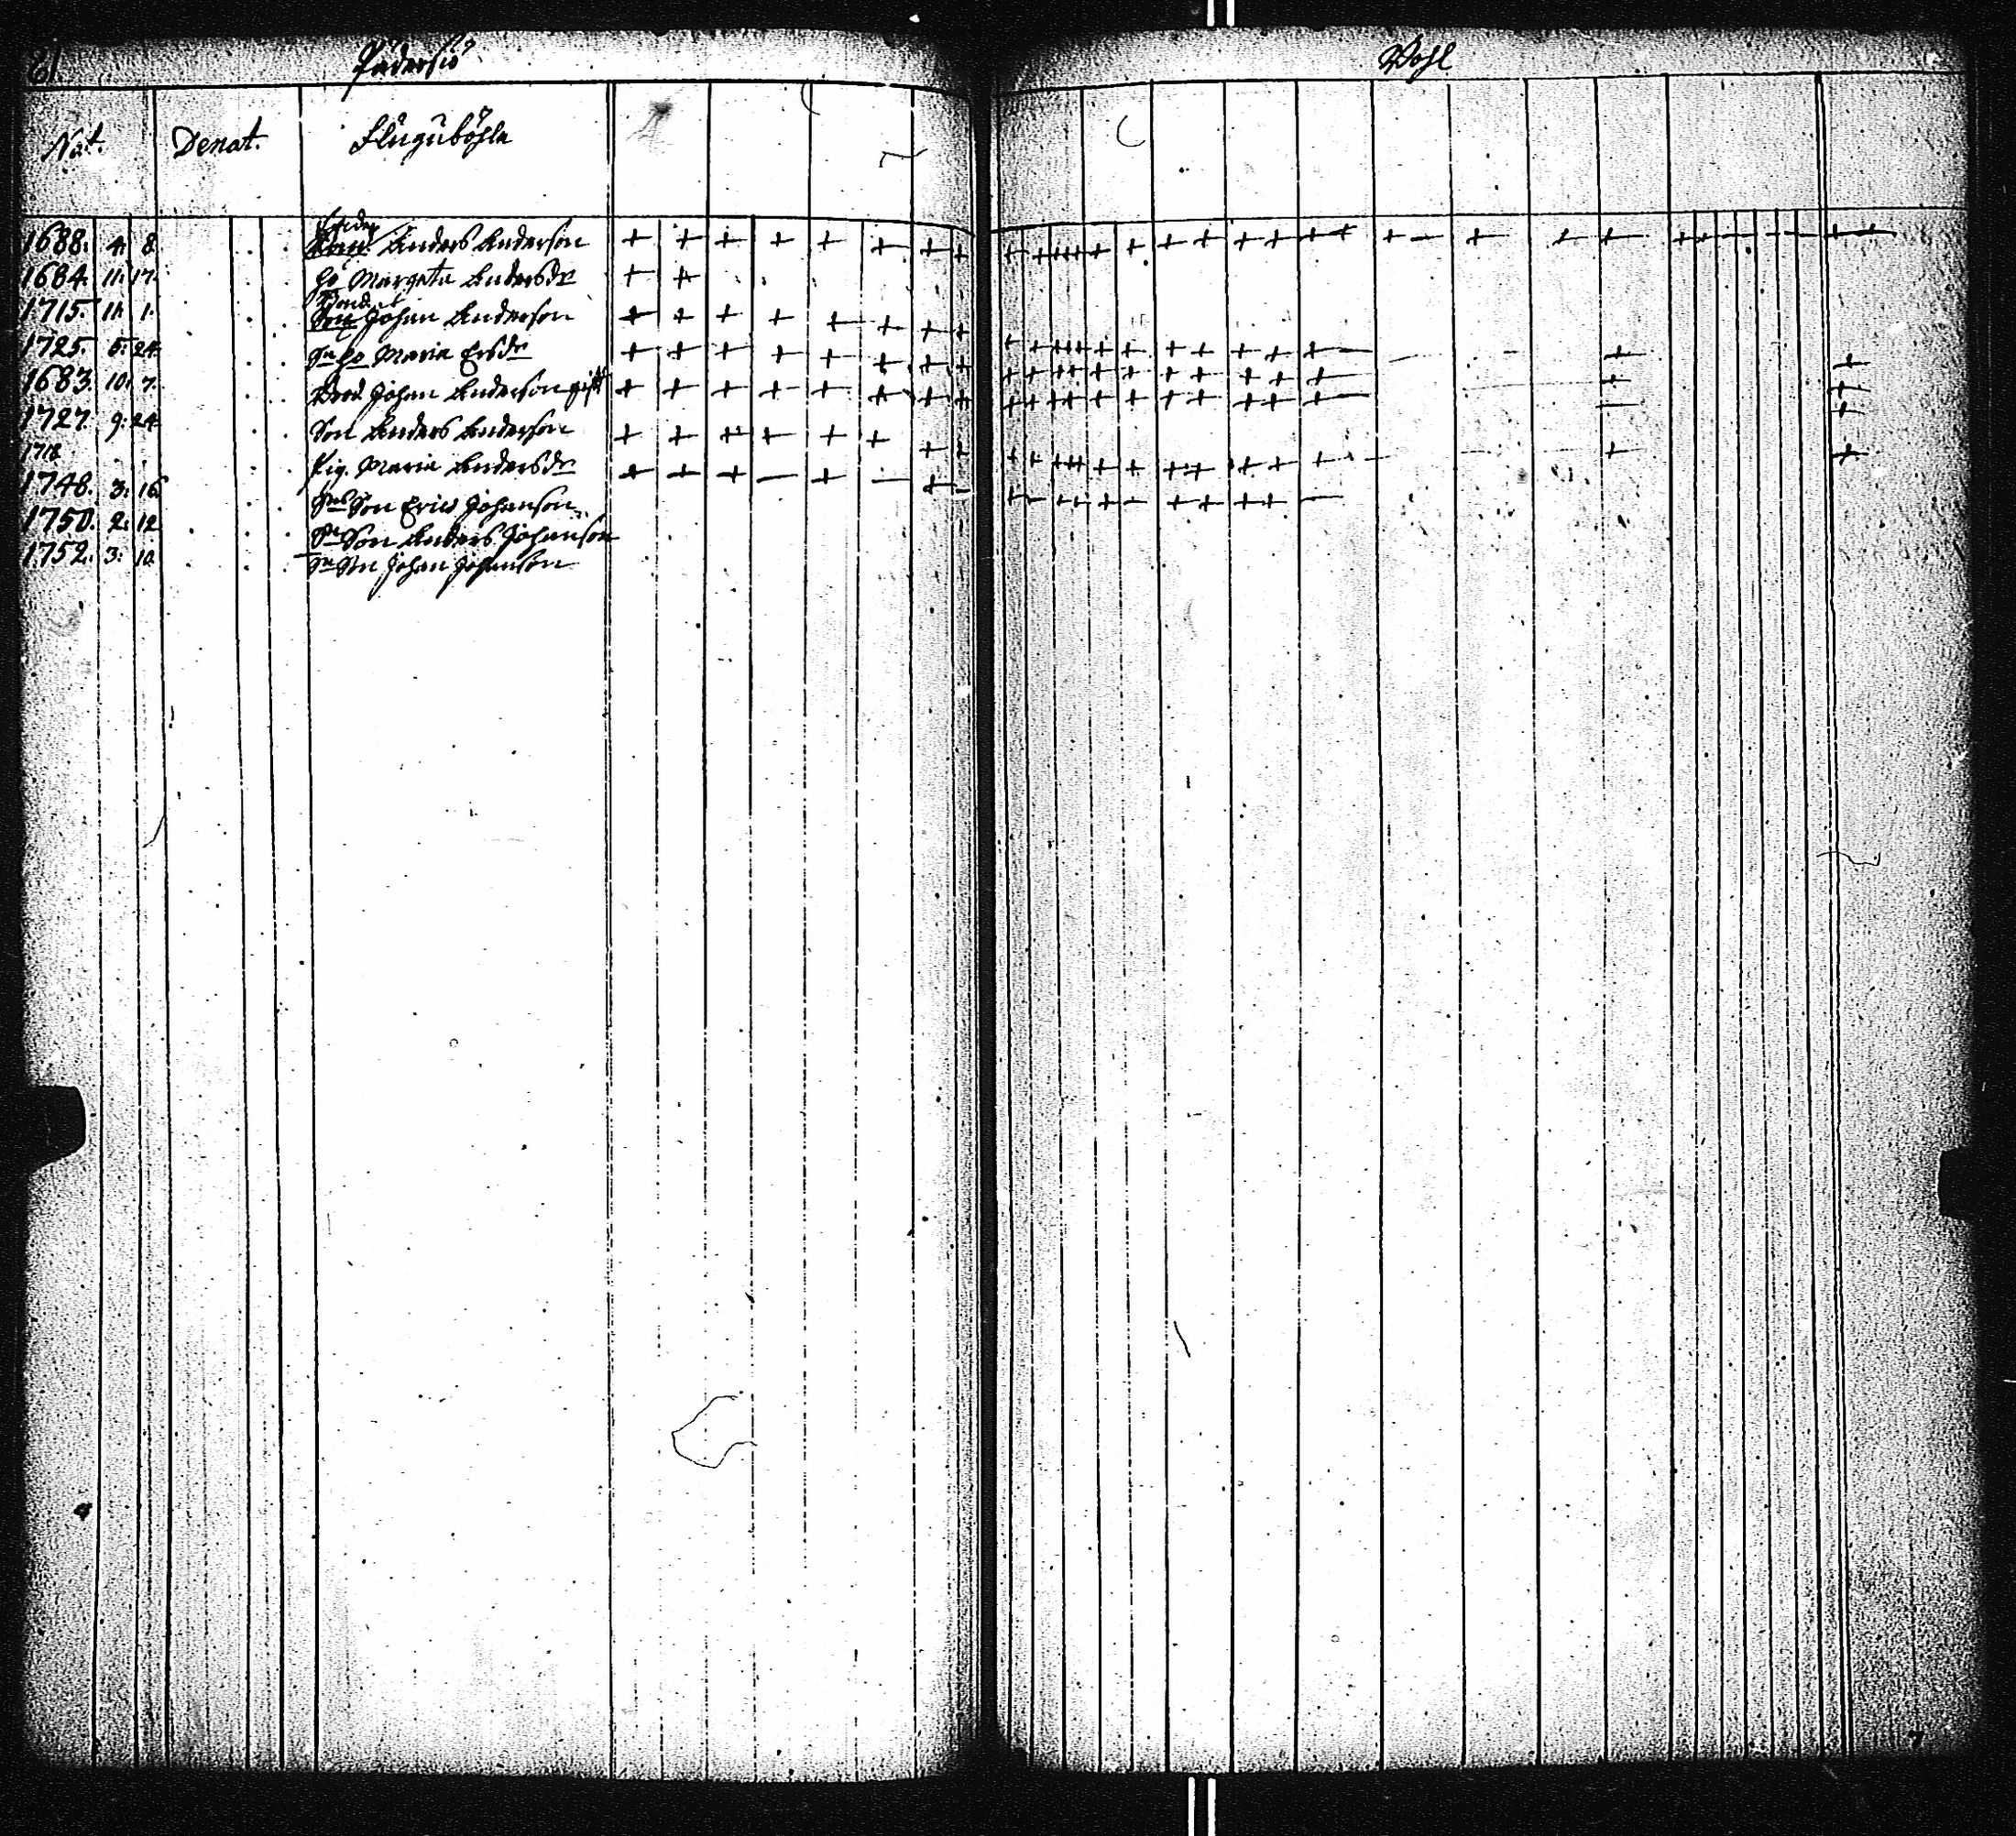 61 Pädersiö Wohl
Nat. Denat. Fluguböhle
1688. 4. 8. Anders Anderson
1684. 11. 17. Ho Margeta Andersdr
1715. 11. 1. Son Johan Anderson
1725. 5. 24. Sn ho Maria Ersdr
1683. 10. 7. Brod Johan Anderson gift
1727. 9. 24. Son Anders Anderson
1718. Pig. Maria Andersdr
1748. 3. 16. Sns Son Eric Johanson
1750. 2. 12. Sn Son Anders Johanson
1752. 3. 10. Sn Son Johan Johanson